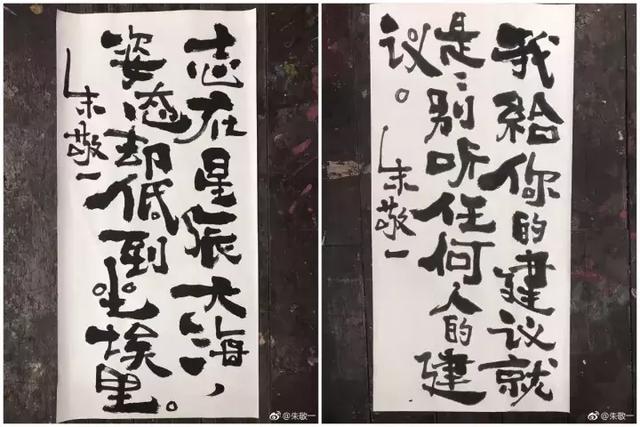 志在星辰大海，
姿态却低到尘埃里。
朱敬一
@朱敬一
我給你的建议就
是：别听任何人的建
议。
朱敬一
@朱敬一